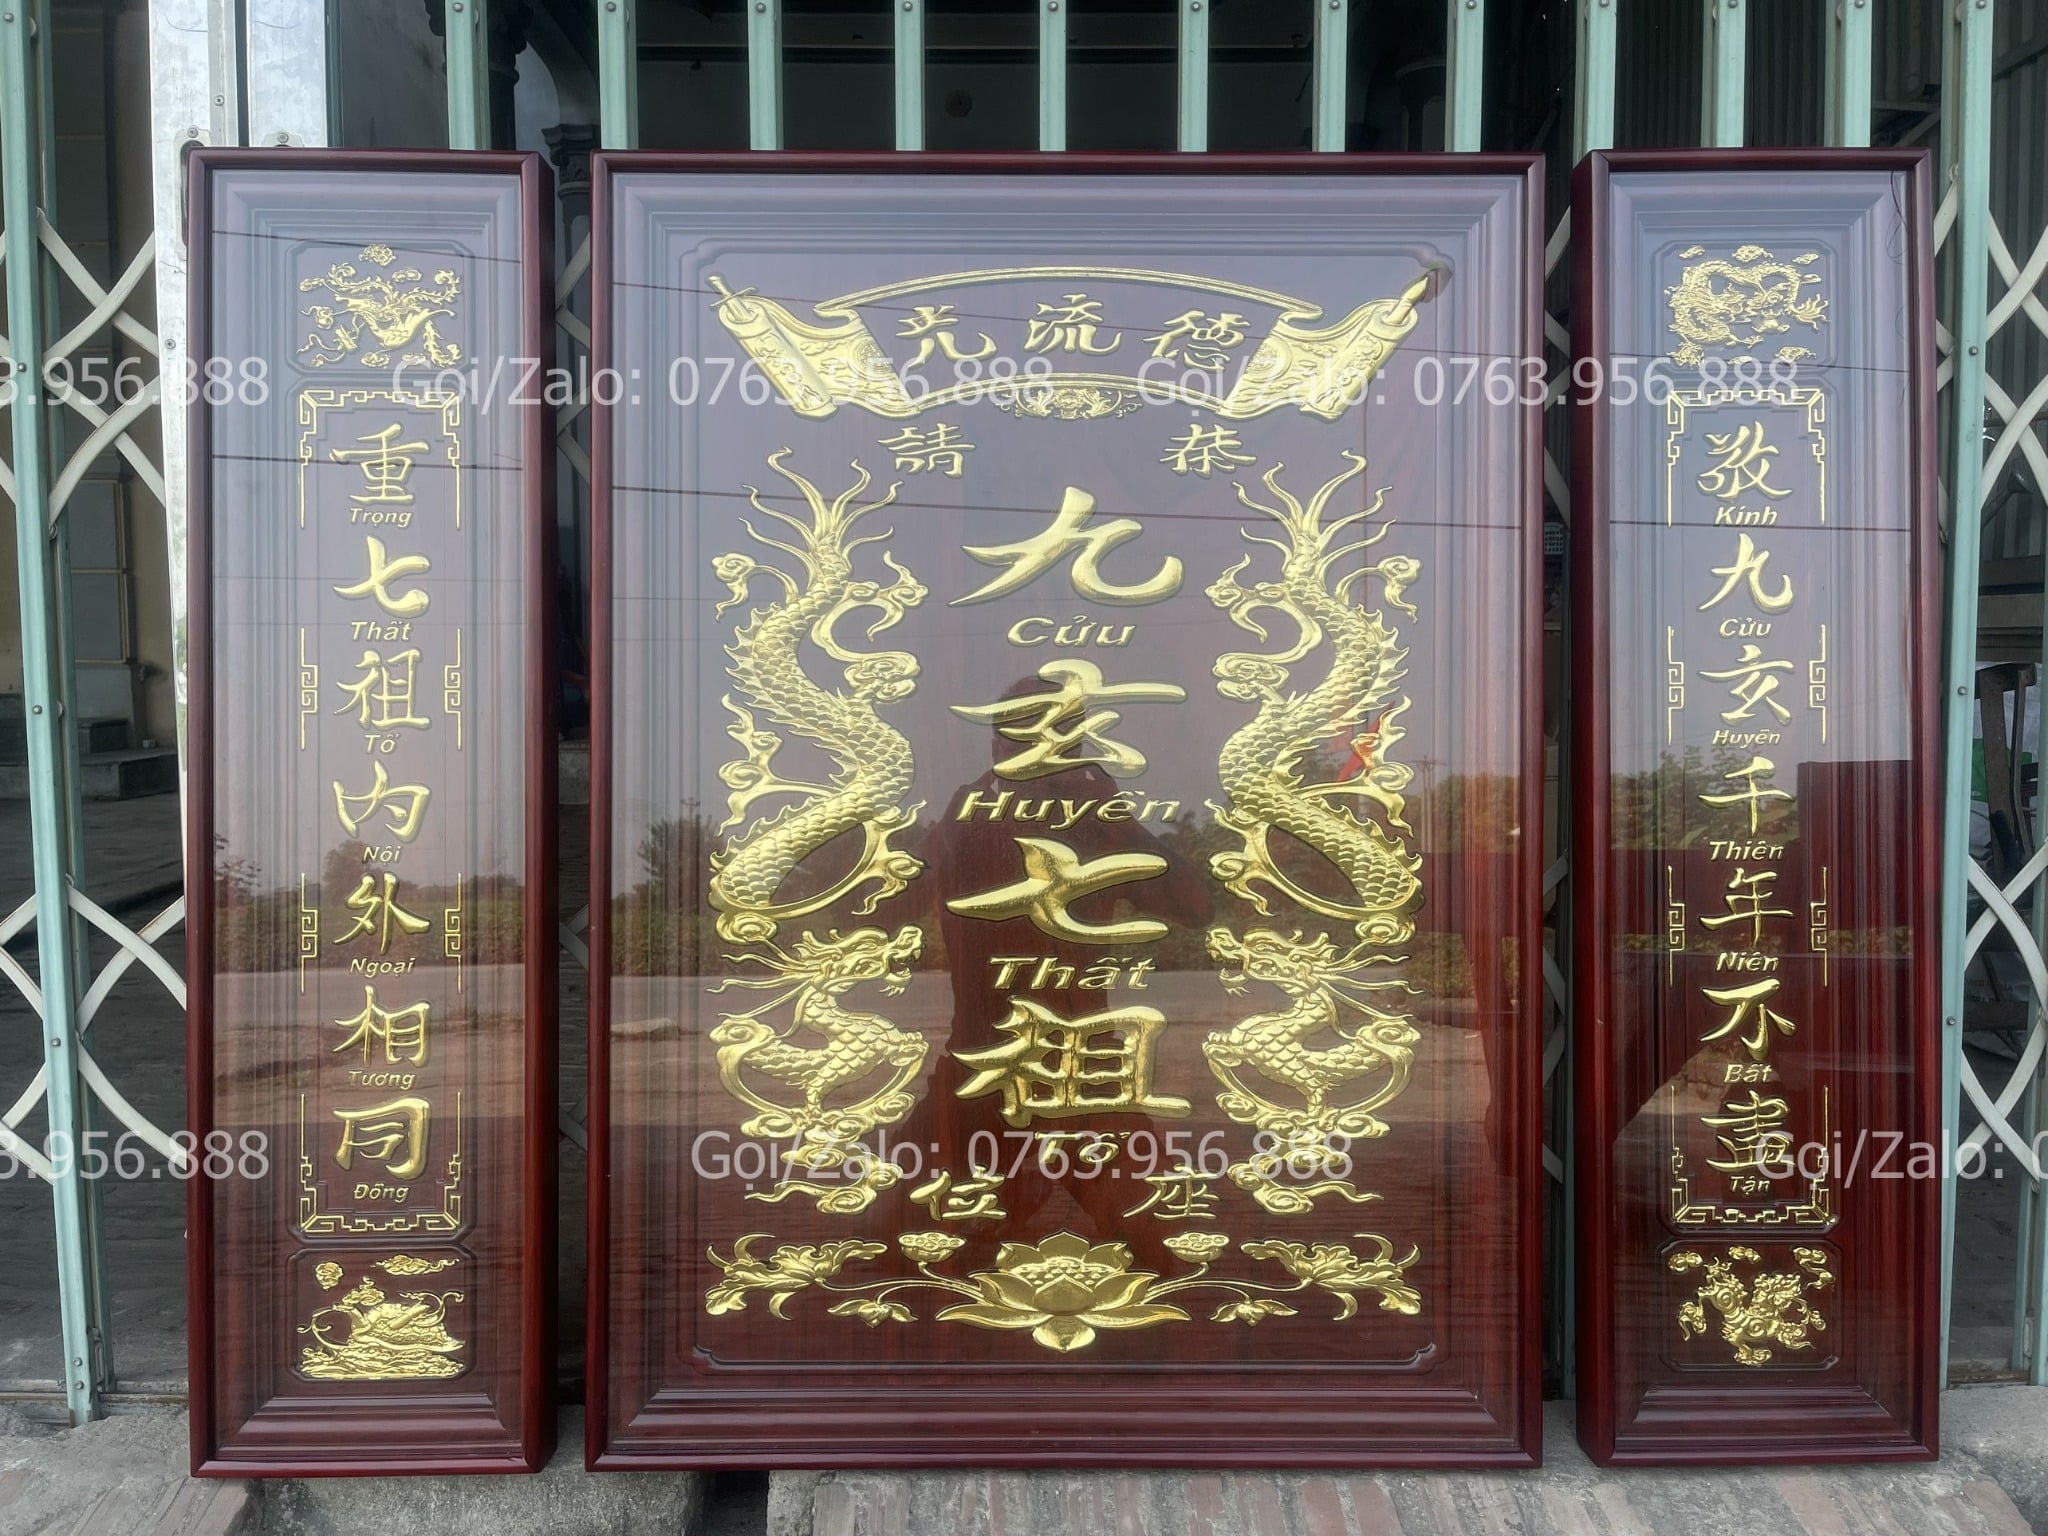 光流德
請 恭
九
Cửu
玄
Huyền
七
Thất
祖
Tổ
位 座
重
Trọng
七
Thất
祖
Tổ
内
Nội
外
Ngoại
相
Tương
同
Đồng
敬
Kính
九
Cửu
玄
Huyền
千
Thiên
年
Niên
不
Bất
盡
Tận
3.956.888 Gọi/Zalo: 0763.956.888 Gọi/Zalo: 0763.956.888
3.956.888 Gọi/Zalo: 0763.956.888 Gọi/Zalo: 0